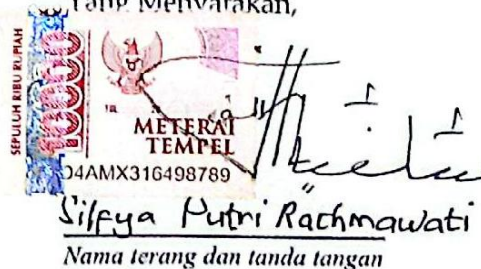 Yang Menyatakan,
SEPULUH RIBU RUPIAH
10000
METERAI
TEMPEL
D4AMX316498789
Silfya Putri Rachmawati
Nama terang dan tanda tangan